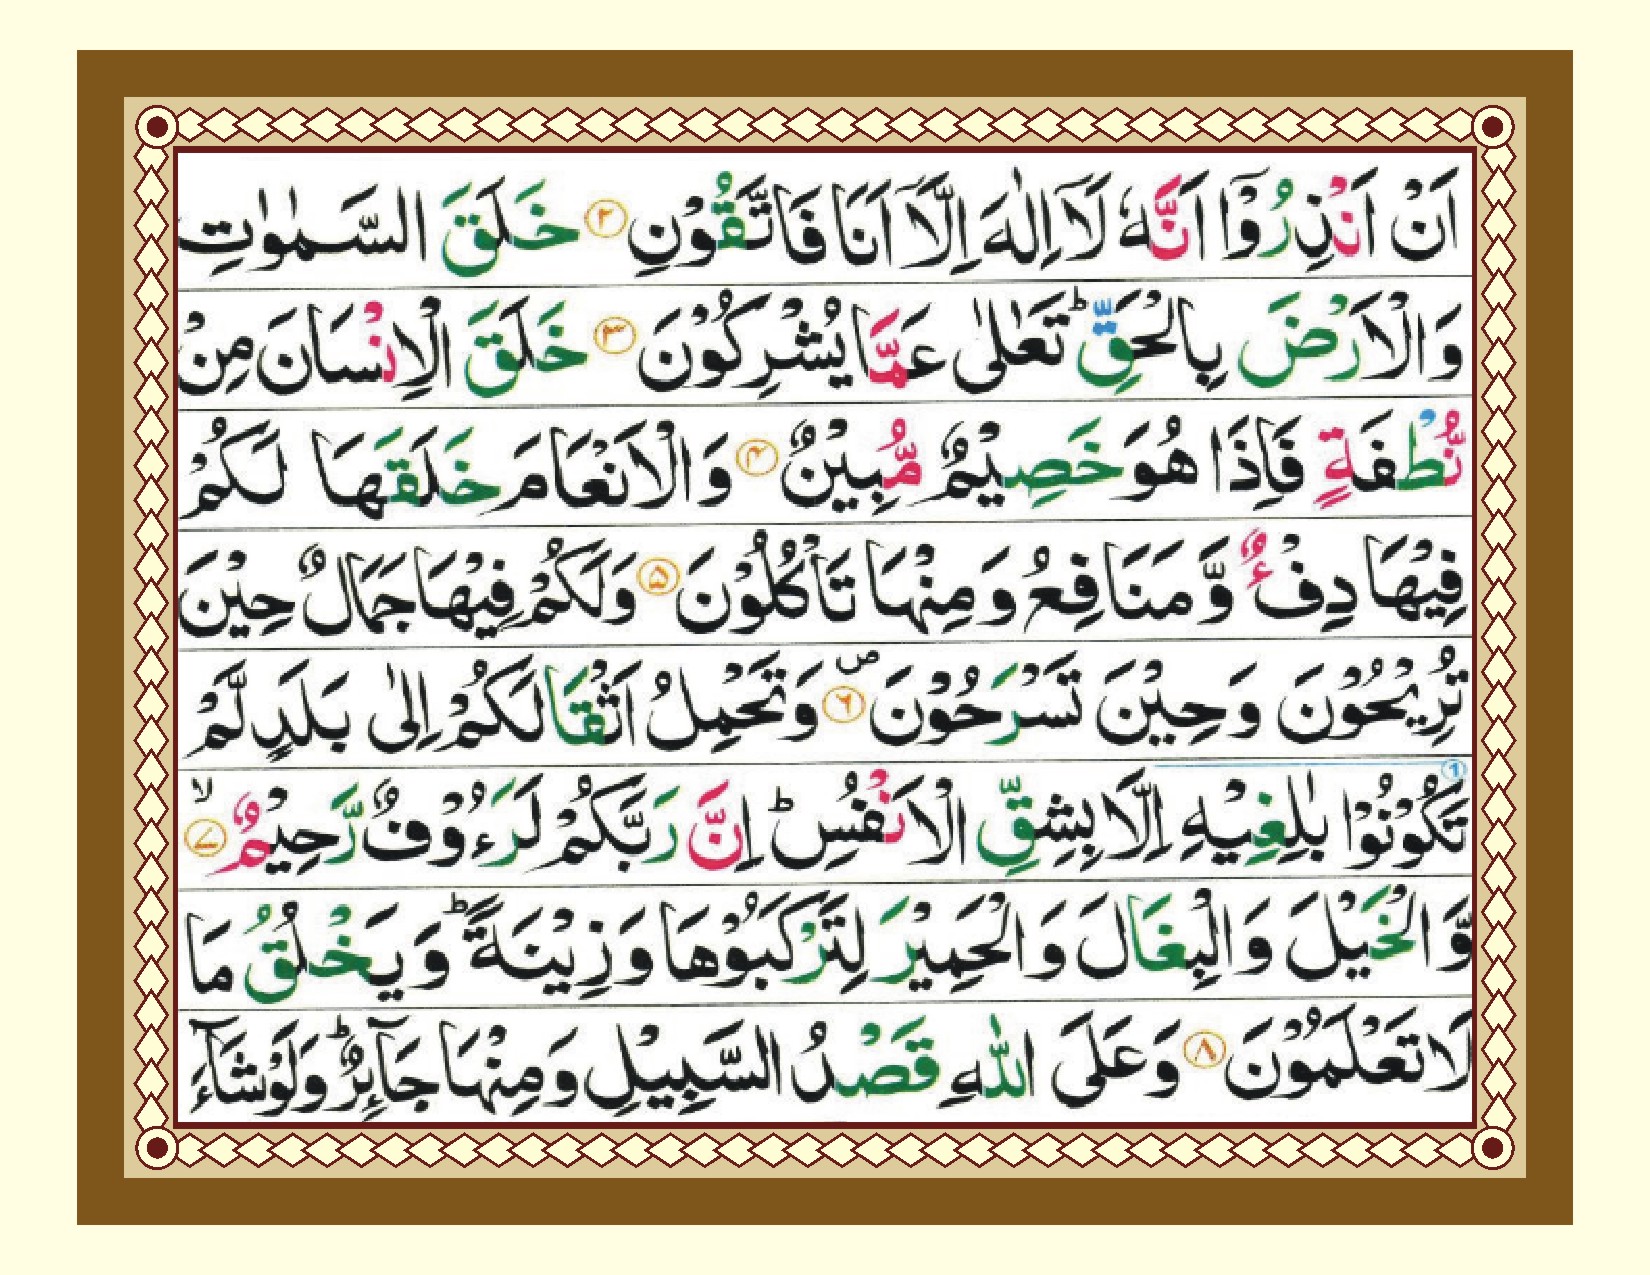 اَنْ اَنْذِرُوْۤا اَنَّهٗ لَاۤ اِلٰهَ اِلَّاۤ اَنَا فَاتَّقُوْنِ ۲ خَلَقَ السَّمٰوٰتِ
وَالْاَرْضَ بِالْحَقِّ ؕ تَعٰلٰى عَمَّا يُشْرِكُوْنَ ۳ خَلَقَ الْاِنْسَانَ مِنْ
نُّطْفَةٍ فَاِذَا هُوَ خَصِيْمٌ مُّبِيْنٌ ۴ وَالْاَنْعَامَ خَلَقَهَا لَكُمْ
فِيْهَا دِفْءٌ وَّمَنَافِعُ وَمِنْهَا تَاْكُلُوْنَ ۵ وَلَكُمْ فِيْهَا جَمَالٌ حِيْنَ
تُرِيْحُوْنَ وَحِيْنَ تَسْرَحُوْنَ ۶ ص وَتَحْمِلُ اَثْقَالَكُمْ اِلٰى بَلَدٍ لَّمْ
۱ تَكُوْنُوْا بٰلِغِيْهِ اِلَّا بِشِقِّ الْاَنْفُسِ ؕ اِنَّ رَبَّكُمْ لَرَءُوْفٌ رَّحِيْمٌ ۷ لا
وَّالْخَيْلَ وَالْبِغَالَ وَالْحَمِيْرَ لِتَرْكَبُوْهَا وَزِيْنَةً ؕ وَيَخْلُقُ مَا
لَا تَعْلَمُوْنَ ۸ وَعَلَى اللّٰهِ قَصْدُ السَّبِيْلِ وَمِنْهَا جَآئِرٌ ؕ وَلَوْ شَآءَ